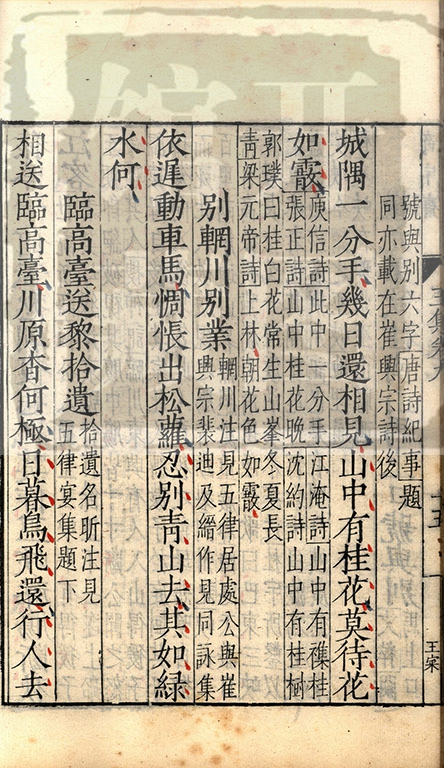 號與別六字唐詩紀事題
同亦載在崔興宗詩後
城隅一分手幾日還相見山中有桂花莫待花
如霰
庾信詩此中一分手江淹詩山中有襍桂
張正詩山中桂花晚沈約詩山中有桂樹
郭璞曰桂白花常生山峯冬夏長
青梁元帝詩上林朝花色如霰
別輞川別業
輞川注見五律居處公與崔
興宗裴迪及縉作見同詠集
依遲動車馬惆悵出松蘿忍別青山去其如綠
水何
臨高臺送黎拾遺
拾遺名昕注見
五律宴集題下
相送臨高臺川原杳何極日暮鳥飛還行人去